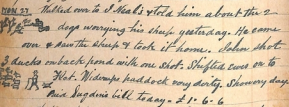 NOV 27 Walked over to J Neal's & told him about the 2
dogs worrying his sheep yesterday. He came
over & saw the sheep & took it home. John shot
3 ducks on back pond with one shot. Shifted ewes on to
Flat. Midways paddock very dirty. Showery day.
Paid Dugdin's bill today. £1-6-6